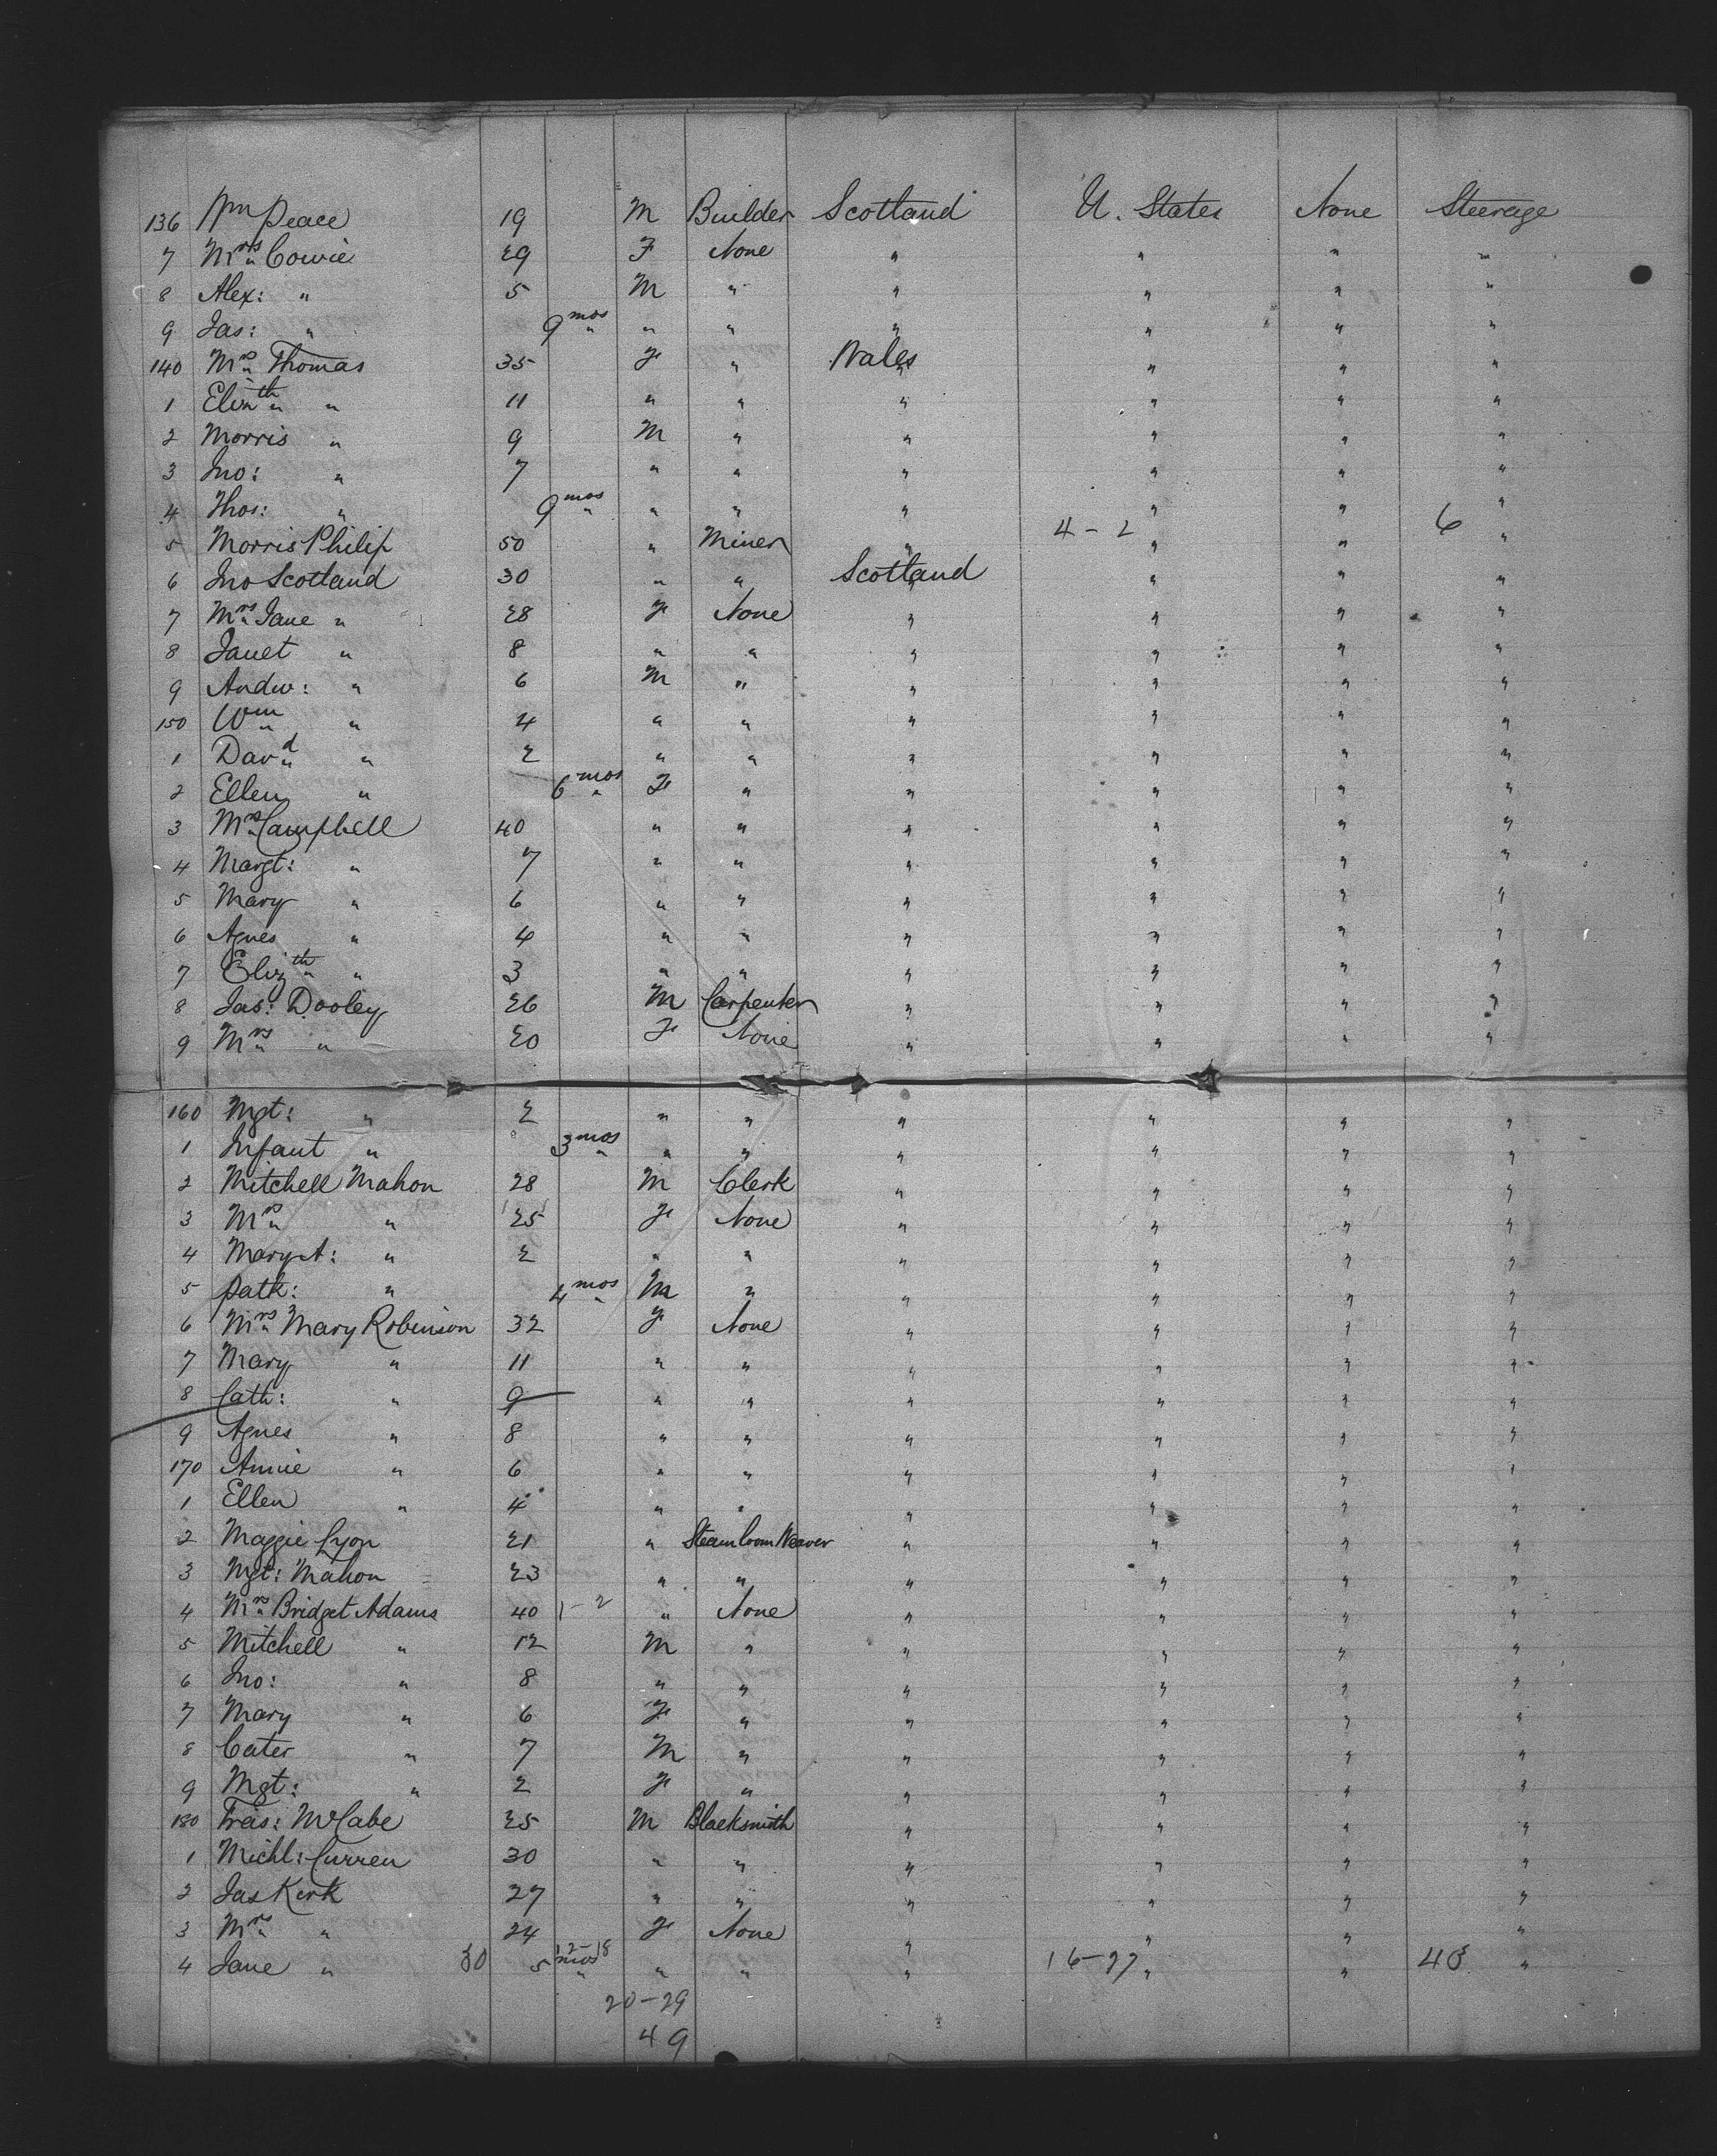 136 Wm Peace 19 M Builder Scotland U. States None Steerage
7 Mrs Cowie 29 F None " " " "
8 Alex: " 5 M " " " " "
9 Jas: " 9 mos " " " " " "
140 Mrs Thomas 35 F " Wales " " "
1 Elizth " 11 " " " " " "
2 Morris " 9 M " " " " "
3 Jno: " 7 " " " " " "
4 Thos: " 9 mos " " " " " "
4 - 2 6
5 Morris Philip 50 " Miner " " " "
6 Jno Scotland 30 " " Scotland " " "
7 Mrs Jane " 28 F None " " " "
8 Janet " 8 " " " " " "
9 Andw: " 6 M " " " " "
150 Wm " 4 " " " " " "
1 Davd " 2 " " " " " "
2 Ellen " 6 mos F " " " " "
3 Mrs Campbell 40 " " " " " "
4 Margt: " 7 " " " " " "
5 Mary " 6 " " " " " "
6 Agnes " 4 " " " " " "
7 Elizth " 3 " " " " " "
8 Jas: Dooley 26 M Carpenter " " " "
9 Mrs " 20 F None " " " "
160 Mgt: " 2 " " " " " "
1 Infant " 3 mos " " " " " "
2 Mitchell Mahon 28 M Clerk " " " "
3 Mrs " 25 F None " " " "
4 Mary A: " 2 " " " " " "
5 Patk: " 4 mos M " " " " "
6 Mrs Mary Robinson 32 F None " " " "
7 Mary " 11 " " " " " "
8 Cath: " 9 " " " " " "
9 Agnes " 8 " " " " " "
170 Annie " 6 " " " " " "
1 Ellen " 4 " " " " " "
2 Maggie Lyon 21 " Steam Loom Weaver " " " "
3 Mgt: Mahon 23 " " " " " "
4 Mrs Bridget Adams 40 1-2 " None " " " "
5 Mitchell " 12 M " " " " "
6 Jno: " 8 " " " " " "
7 Mary " 6 F " " " " "
8 Cater " 7 M " " " " "
9 Mgt: " 2 F " " " " "
180 Fras: McCabe 25 M Blacksmith " " " "
1 Michl: Curren 30 " " " " " "
2 Jas Kirk 27 " " " " " "
3 Mrs " 24 F None " " " "
12-18
4 Jane " 30 5 mos " " " 16-27 " " "
20-29
49